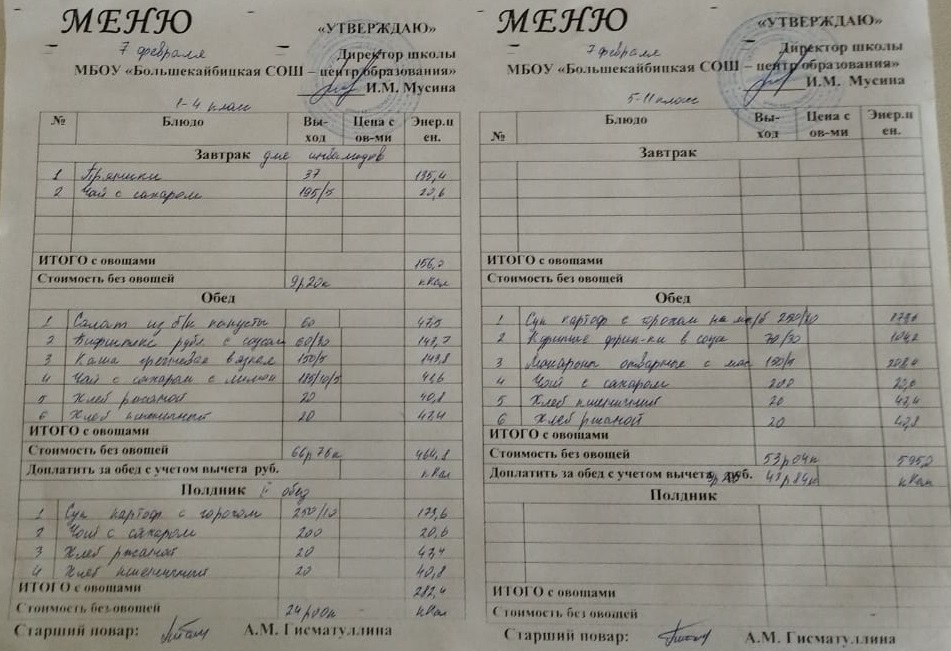 МЕНЮ
«УТВЕРЖДАЮ»
7 февраля
Директор школы
МБОУ «Большекайбицкая СОШ – центр образования»
И.М. Мусина
1-4 класс
№ Блюдо Вы-ход Цена с ов-ми Энер.ц ен.
Завтрак для инвалидов
1 Пряники 37 135,4
2 Чай с сахаром 195/5 20,6
ИТОГО с овощами 156,0
Стоимость без овощей 9р20к кКал
Обед
1 Салат из б/к капусты 60 47,5
2 Бифштекс рубл с соусом 60/30 143,7
3 Каша гречневая вязкая 150/5 143,8
4 Чай с сахаром с лимон 185/10/5 41,6
5 Хлеб ржаной 20 40,8
6 Хлеб пшеничный 20 47,4
ИТОГО с овощами
Стоимость без овощей 66р76к 464,8
Доплатить за обед с учетом вычета руб. кКал
Полдник II обед
1 Суп картоф с горохом 250/10 173,6
2 Чай с сахаром 200 20,6
3 Хлеб ржаной 20 47,4
4 Хлеб пшеничный 20 40,8
ИТОГО с овощами 282,4
Стоимость без овощей 24р00к кКал
Старший повар: А.М. Гисматуллина
МЕНЮ
«УТВЕРЖДАЮ»
7 февраля
Директор школы
МБОУ «Большекайбицкая СОШ – центр образования»
И.М. Мусина
5-11 класс
№ Блюдо Вы-ход Цена с ов-ми Энер.ц ен.
Завтрак
ИТОГО с овощами
Стоимость без овощей
Обед
1 Суп картоф с горохом на мя/б 250/30
2 Куриные фрик-ки в соусе 70/30
3 Макароны отварные с мас 150/5
4 Чай с сахаром 200
5 Хлеб пшеничный 20 47,4
6 Хлеб ржаной 20
ИТОГО с овощами
Стоимость без овощей 53р04к
Доплатить за обед с учетом вычета руб. 43р84к кКал
Полдник
ИТОГО с овощами
Стоимость без овощей
Старший повар: А.М. Гисматуллина